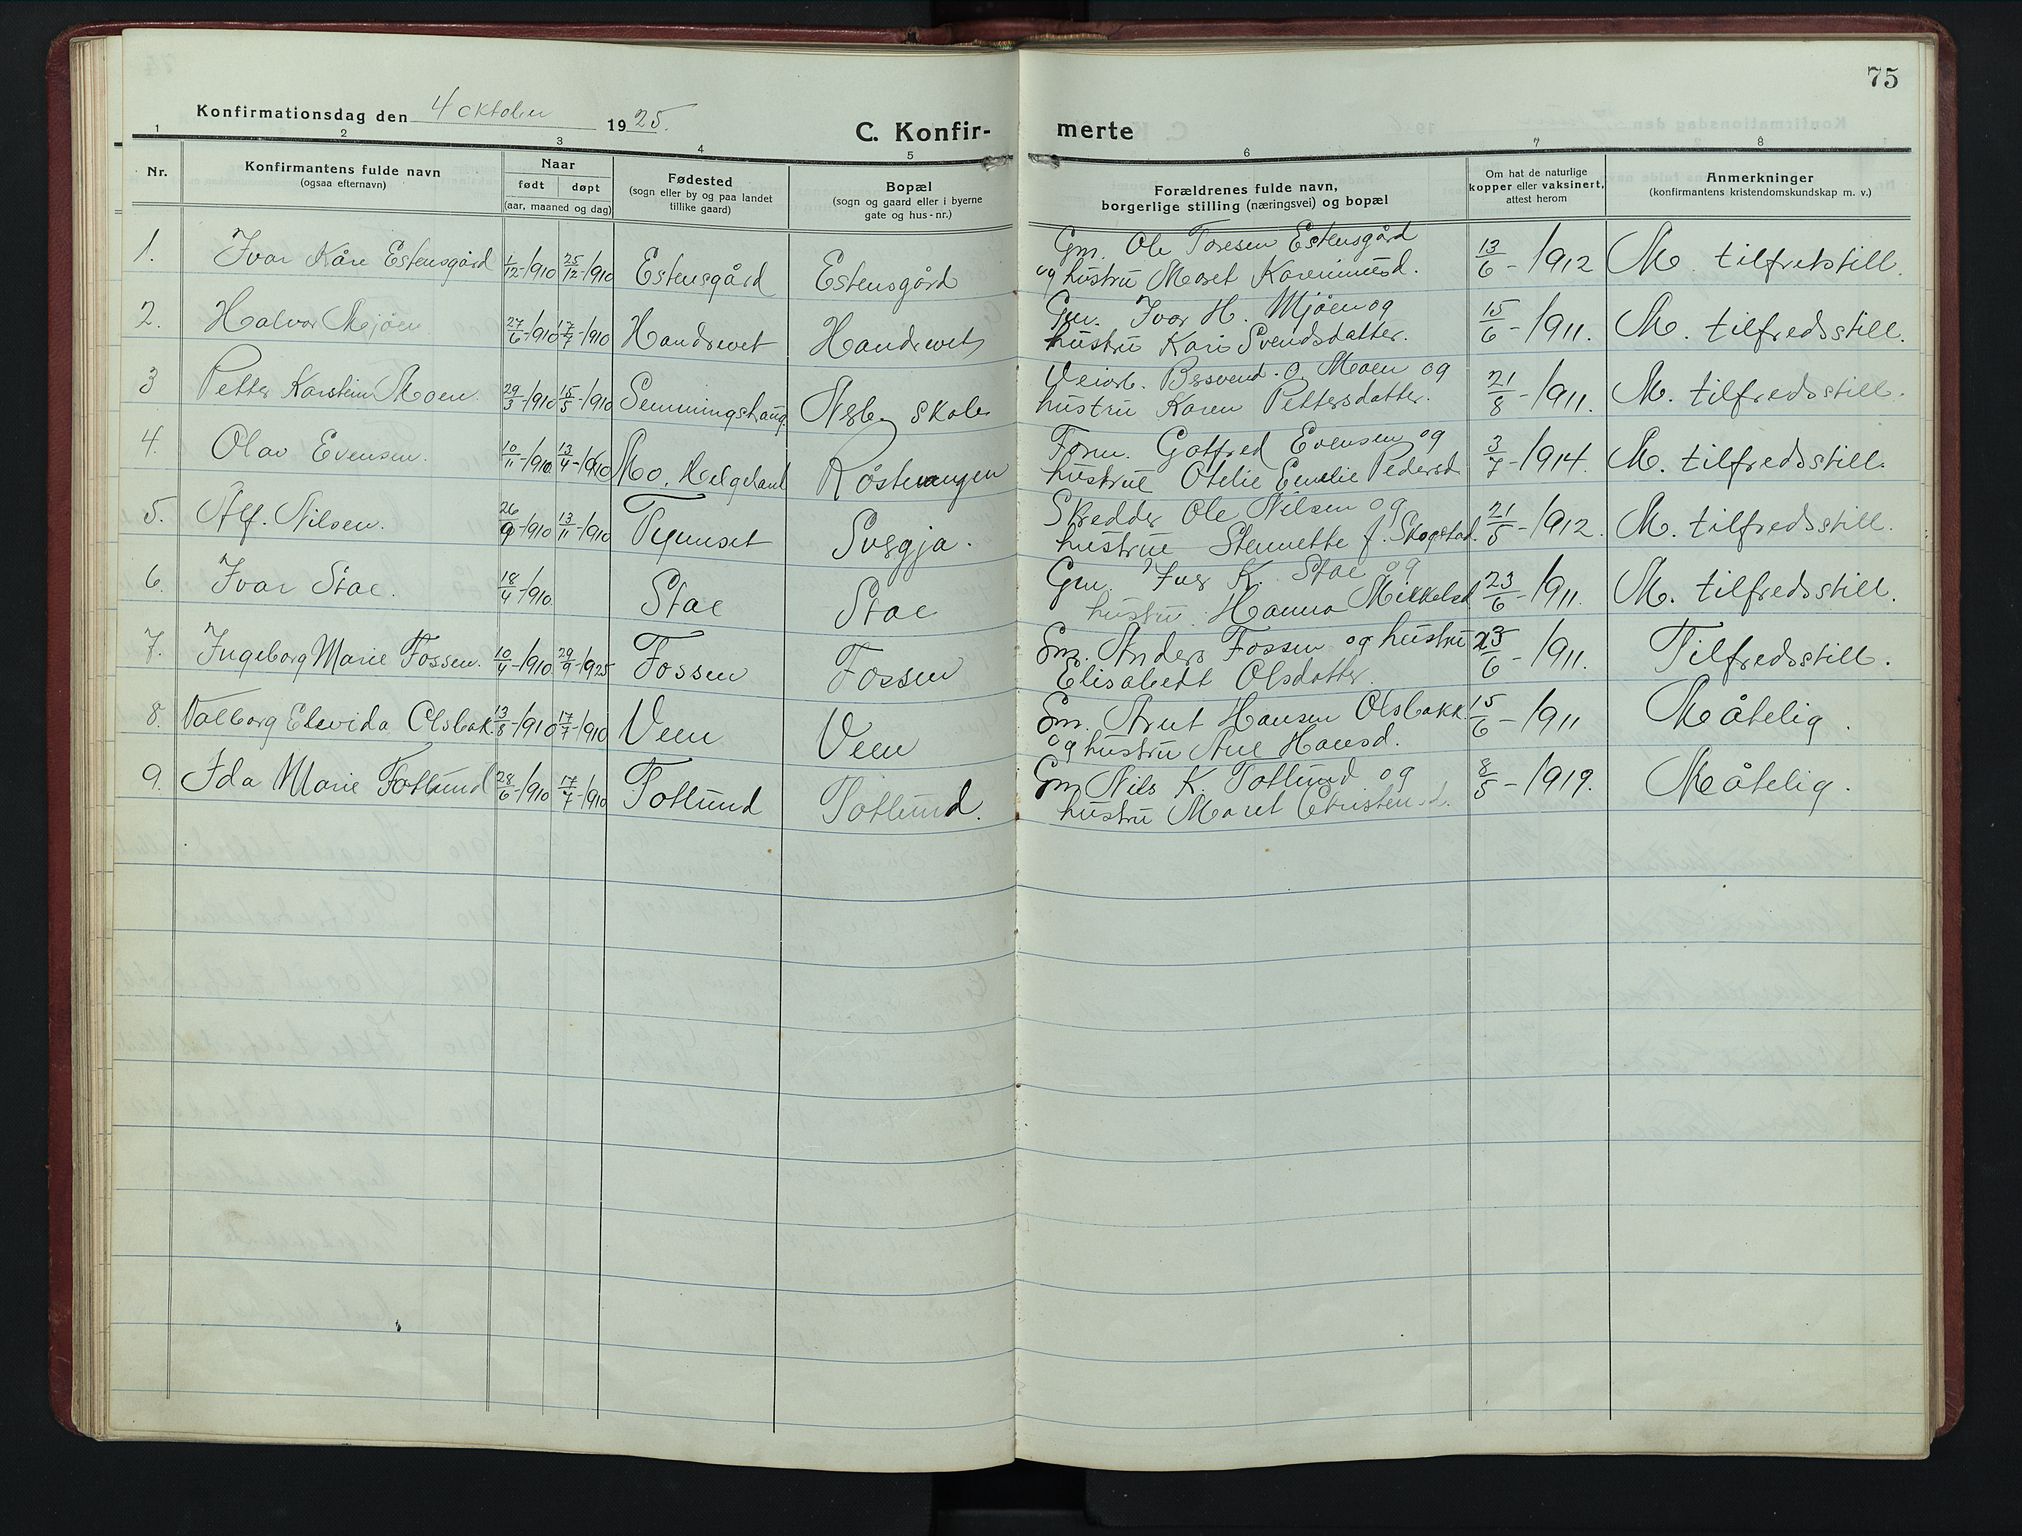 75
Konfirmationsdag den 4 oktober 1925.
C. Konfir- merte
1 2 3 4 5 6 7 8
Nr.
Konfirmantens fulde navn
(ogsaa efternavn)
Naar
født døpt
(aar, maaned og dag)
Fødested
(sogn eller by og paa landet
tillike gaard)
Bopæl
(sogn og gaard eller i byerne
gate og hus-nr.)
Forældrenes fulde navn,
borgerlige stilling (næringsvei) og bopæl
Om hat de naturlige
kopper eller vaksinert,
attest herom
Anmerkninger
(konfirmantens kristendomskundskap m. v.)
1. Ivar Kåre Estensgård 1/12-1910 25/12-1910 Estensgård Estensgård Gm. Ole Toresen Estensgård 13/6-1912 M. tilfredstill.
og hustru Maret
2. Halvor Mjøen 27/6-1910 17/7-1910 Handrevet Handrevet Gm. Ivar H. Mjøen og 15/6-1911. M. tilfredsstill.
hustru Kari Svendsdatter.
3 Petter Karstein Moen. 29/3-1910 15/5-1910 Semmingshaug Nerb. skole Esvend. O. Moen og 21/8-1911. M. tilfredsstill.
hustru Karen Pettersdatter.
4. Olav Evensen. 10/11-1910 13/4-1910 Mo, Helgeland Røstvangen Form. Gotfred Evensen og 3/7-1914. M. tilfredsstill.
hustrue Otelie Emelie Pedersd
5. Alf. Nilsen. 26/9-1910 13/11-1910 Tynnset Svergja. Skredder Ole Nilsen og 21/5-1912. M. tilfredsstill.
hustrue Stennette f. Skogstad.
6. Ivar Stae. 18/4-1910. Stae Stae Gm. Iver K. Stae og 23/6-1911. M. tilfredsstill.
hustru. Hanna Mikkelsd
7. Ingeborg Marie Fossen. 10/4-1910. 29/9-1925 Fossen Fossen Sm. Anders Fossen og hustru 23/6-1911. Tilfredsstill.
Elisabedt Olsdatter.
8. Valborg Elevida Olsbak. 13/8-1910 17/7-1910 Veen Veen Sm. Arnt Hansen Olsbakk 15/6-1911 Måtelig.
og hustru Ane Hansd.
9. Ida Marie Totlund 28/6-1910 17/7-1910 Totlund Totlund. Gm Nils K. Totlund og 8/5-1919. Måtelig.
hustru Maret Christensd.